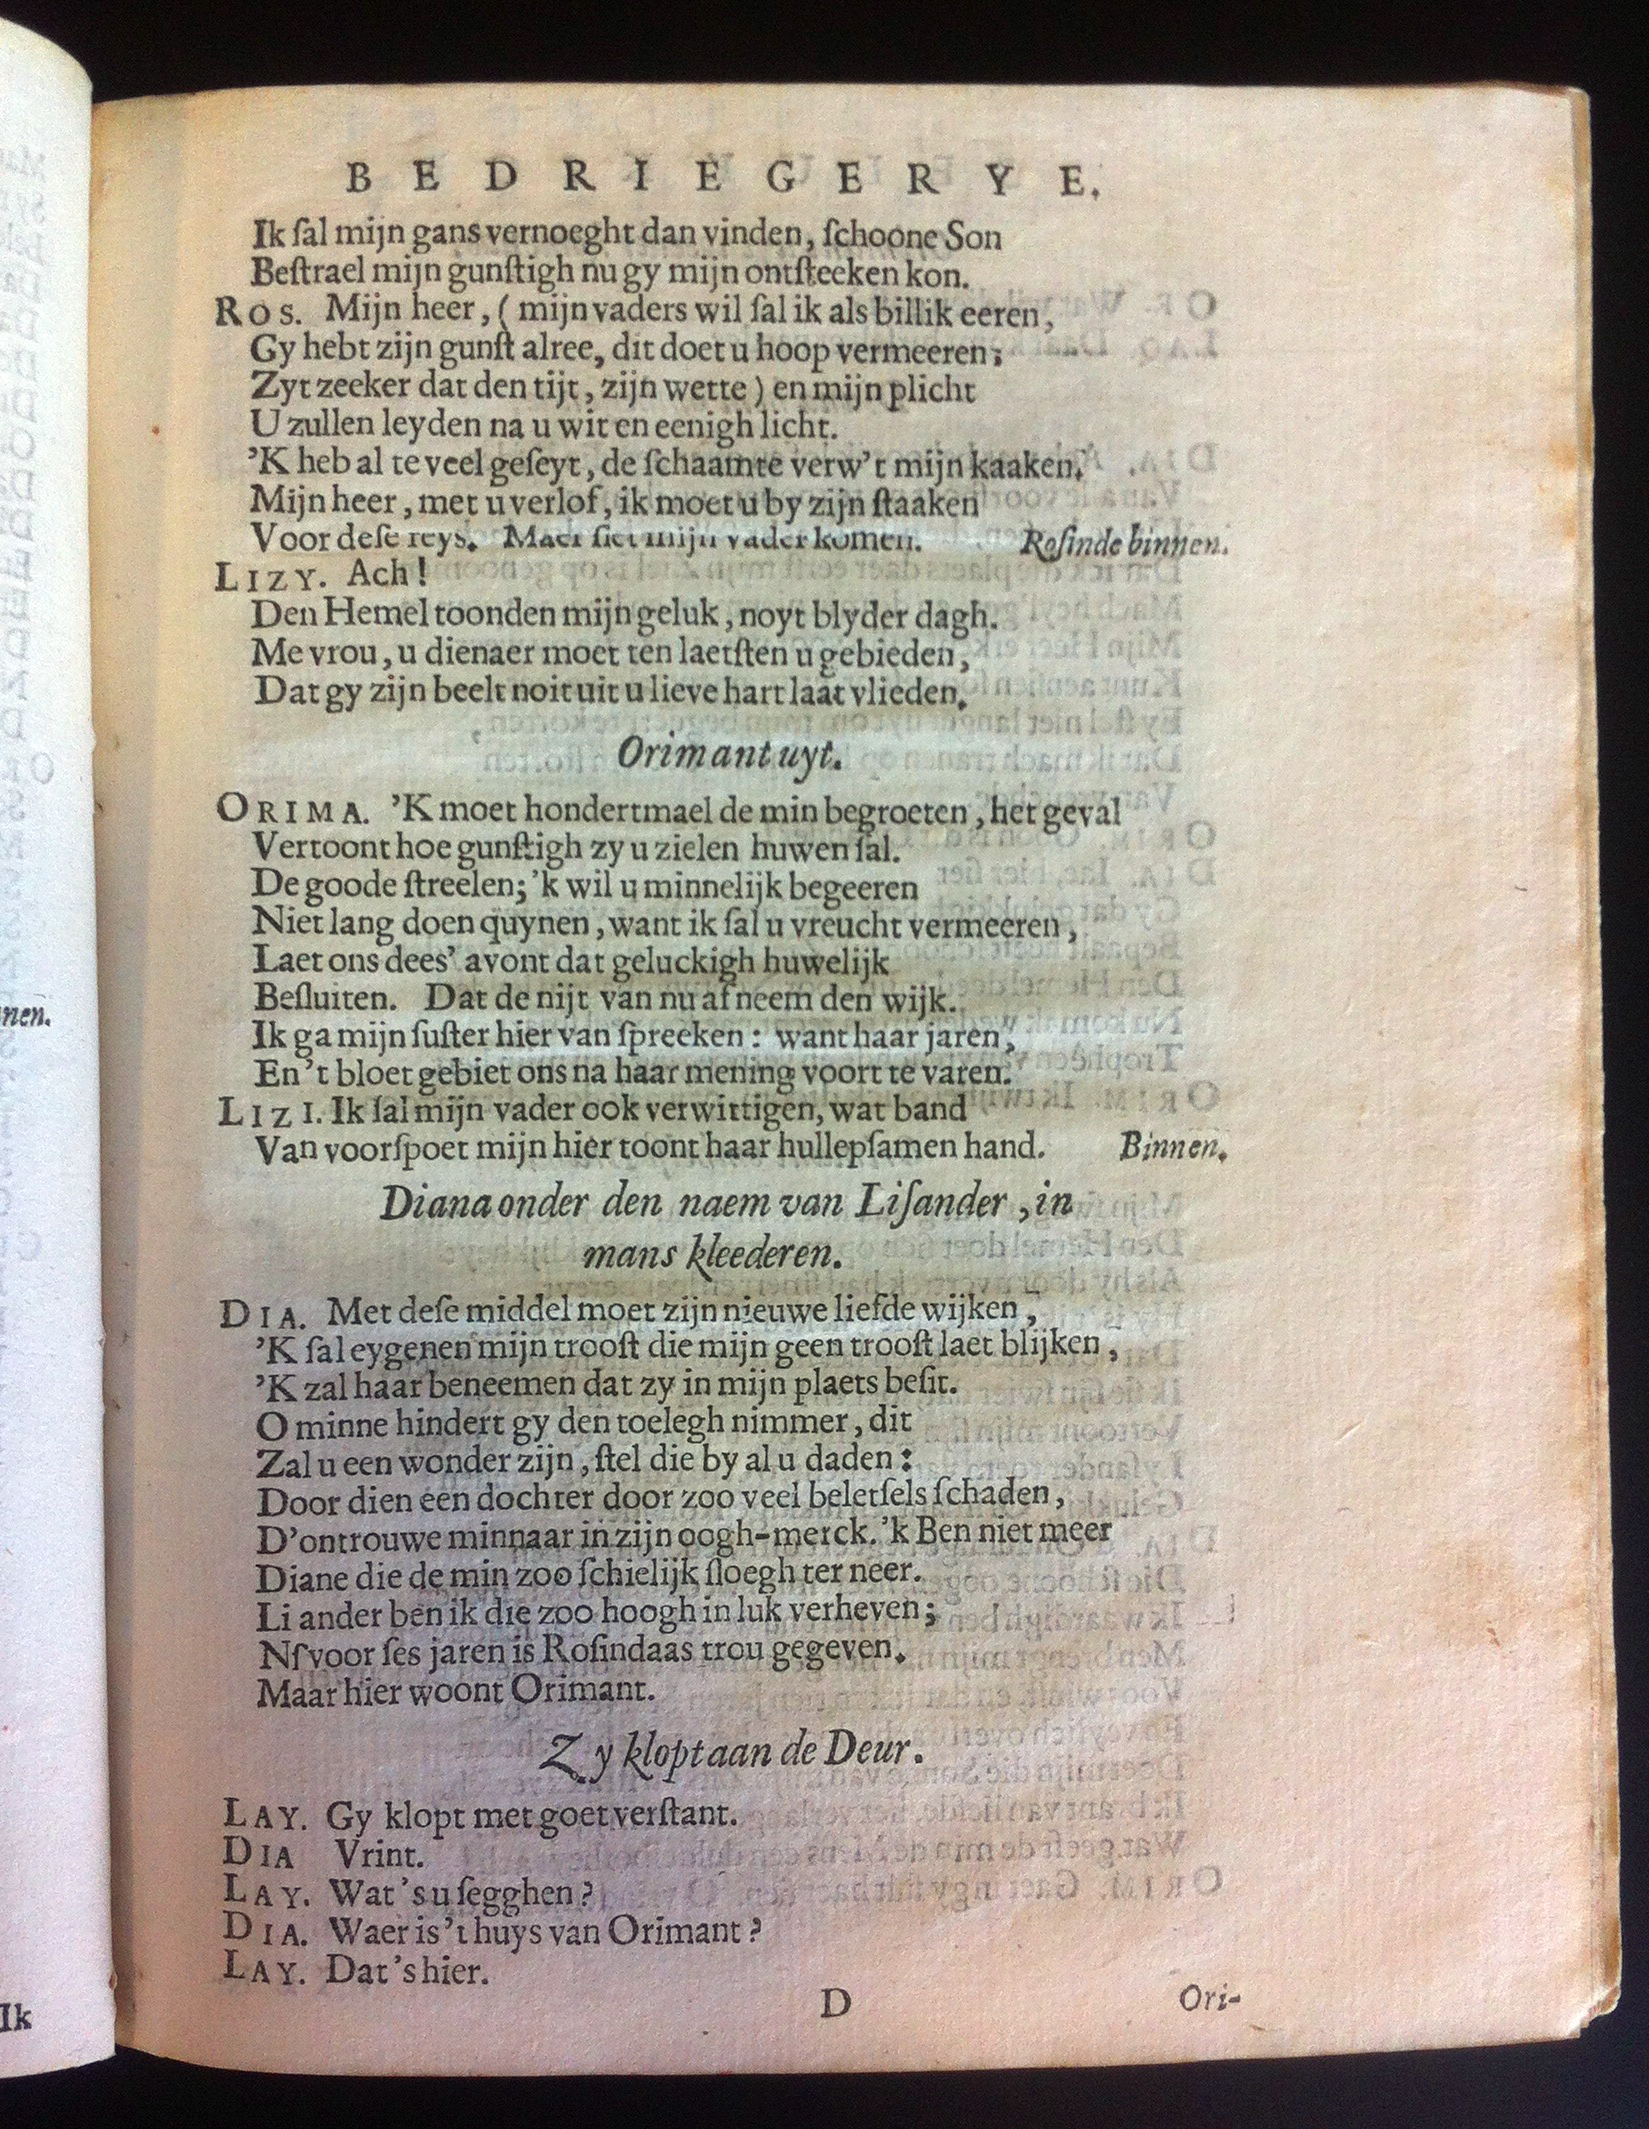 BEDRIEGERYE.
Ik ſal mijn gans vernoeght dan vinden, ſchoone Son
Beſtrael mijn gunſtigh nu gy mijn ontſteeken kon.
ROS. Mijn heer, ( mijn vaders wil ſal ik als billik eeren,
Gy hebt zijn gunſt alree, dit doet u hoop vermeeren;
Zyt zeeker dat den tijt, zijn wette ) en mijn plicht
U zullen leyden na u wit en eenigh licht.
’K heb al te veel geſeyt, de ſchaamte verw’t mijn kaaken,
Mijn heer, met u verlof, ik moet u by zijn ſtaaken
Voor deſe reys. Maer ſiet mijn vader komen. Roſinde binnen.
LIZY. Ach!
Den Hemel toonden mijn geluk, noyt blyder dagh.
Me vrou, u dienaer moet ten laetſten u gebieden,
Dat gy zijn beelt noit uit u lieve hart laat vlieden.
Orimant uyt.
ORIMA. ’K moet hondertmael de min begroeten, het geval
Vertoont hoe gunſtigh zy u zielen huwen ſal.
De goode ſtreelen; ’k wil u minnelijk begeeren
Niet lang doen quynen, want ik ſal u vreucht vermeeren,
Laet ons dees’ avont dat geluckigh huwelijk
Beſluiten. Dat de nijt van nu af neem den wijk.
Ik ga mijn ſuſter hier van ſpreeken: want haar jaren,
En ’t bloet gebiet ons na haar mening voort te varen.
LIZI. Ik ſal mijn vader ook verwittigen, wat band
Van voorſpoet mijn hier toont haar hullepſamen hand. Binnen.
Diana onder den naem van Liſander, in
mans kleederen.
DIA. Met deſe middel moet zijn nieuwe liefde wijken,
’K ſal eygenen mijn trooſt die mijn geen trooſt laet blijken,
’K zal haar beneemen dat zy in mijn plaets beſit.
O minne hindert gy den toelegh nimmer, dit
Zal u een wonder zijn, ſtel die by al u daden:
Door dien een dochter door zoo veel beletſels ſchaden,
D’ontrouwe minnaar in zijn oogh-merck. ’k Ben niet meer
Diane die de min zoo ſchielijk ſloegh ter neer.
Li ander ben ik die zoo hoogh in luk verheven;
Nſ voor ſes jaren is Roſindaas trou gegeven.
Maar hier woont Orimant.
Zy klopt aan de Deur.
LAY. Gy klopt met goet verſtant.
DIA Vrint.
LAY. Wat ’s u ſegghen?
DIA. Waer is ’t huys van Orimant?
LAY. Dat ’s hier.
D Ori-
nen.
Ik